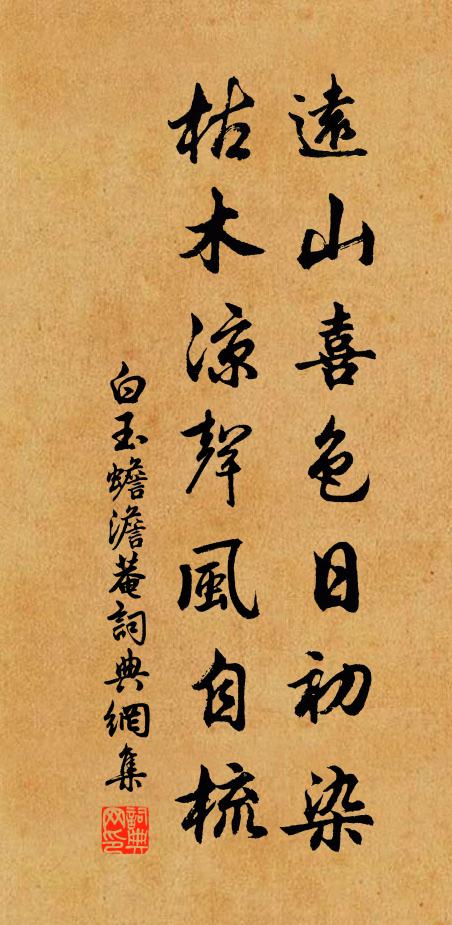 遠山喜色日初染
枯木涼聲風自梳
白玉蟾澹菴詞典網集
詞典网印